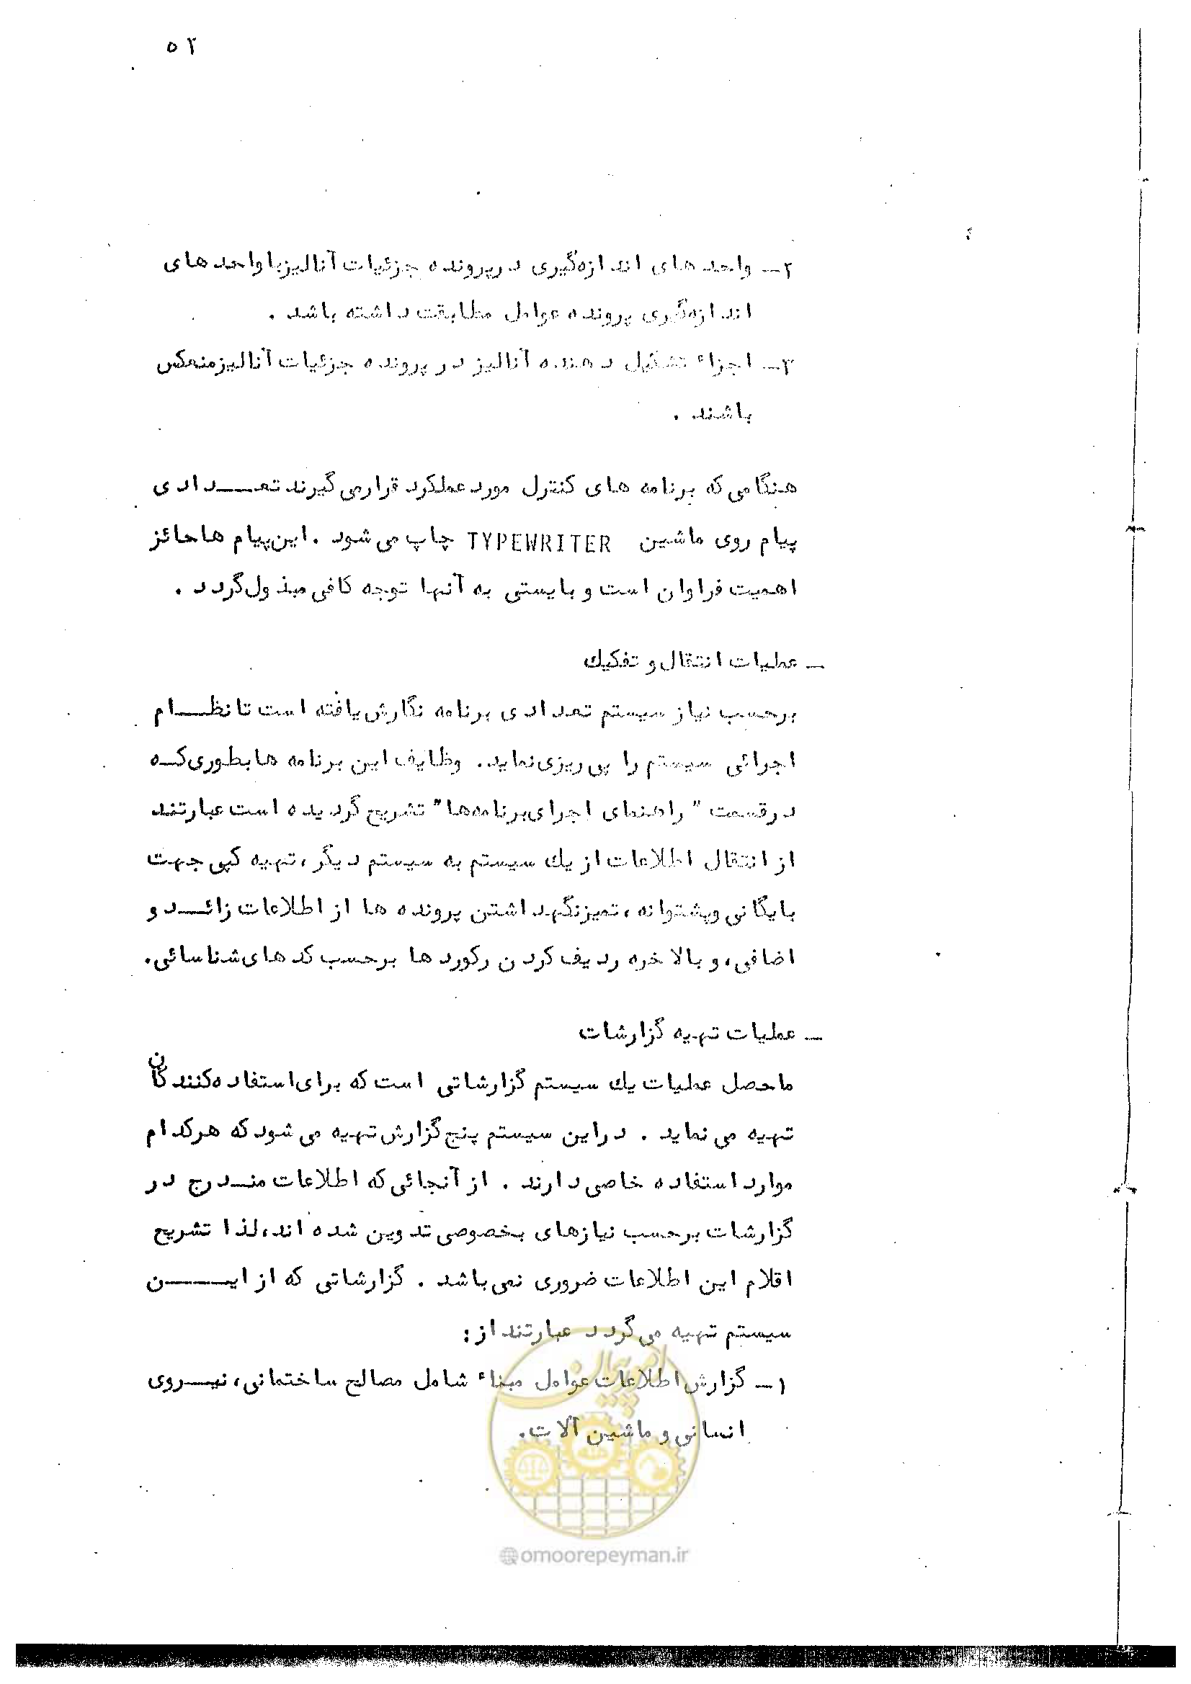 ۵۲
۲ـ واحدهای اندازه‌گیری درپرونده جزئیات آنالیزباواحدهای
اندازه‌گیری پرونده عوامل مطابقت داشته باشد .
۳ـ اجزاء تشکیل دهنده آنالیز در پرونده جزئیات آنالیزمنعکس
باشند .
هنگامی‌که برنامه های کنترل موردعملکرد قرارمی‌گیرند تعــدادی
پیام روی ماشین TYPEWRITER چاپ می‌شود .این‌پیام هاحائز
اهمیت فراوان است و بایستی به آنها توجه کافی مبذول‌گردد .
ـ عملیات انتقال و تفکیك
برحسب نیاز سیستم تعدادی برنامه نگارش‌یافته است تانظــام
اجرائی سیستم را پی‌ریزی‌نماید. وظایف این برنامه هابطوری‌کــه
درقسمت "راهنمای اجرای‌برنامه‌ها" تشریح گردیده است عبارتند
از انتقال اطلاعات از یك سیستم به سیستم دیگر، تهیه کپی جهت
بایگانی وپشتوانه ، تمیزنگهداشتن پرونده ها از اطلاعات زائــد و
اضافی، و بالاخره ردیف کردن رکوردها برحسب کدهای‌شناسائی.
ـ عملیات تهیه گزارشات
ماحصل عملیات یك سیستم گزارشاتی است که برای‌استفاده‌کنندگان
تهیه می نماید . دراین سیستم پنج‌گزارش تهیه می شودکه هرکدام
موارد استفاده خاصی دارند . از آنجائی‌که اطلاعات منــدرج در
گزارشات برحسب نیازهای بخصوصی تدوین شده اند، لذا تشریح
اقلام این اطلاعات ضروری نمی‌باشد . گزارشاتی که از ایــــن
سیستم تهیه می‌گردد عبارتند از:
۱ـ گزارش اطلاعات عوامل مبناء شامل مصالح ساختمانی، نیــروی
انسانی و ماشین آلات.
امور پیمان
@omoorepeyman.ir